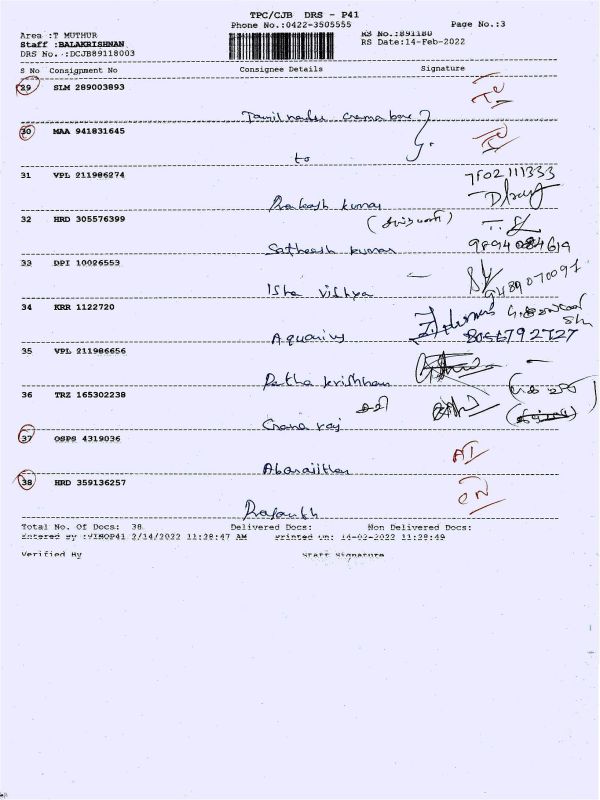 TPC/CJB DRS - P41
Phone No.:0422-3505555 Page No.:3
Area :T MUTHUR RS No.:891180
Staff :BALAKRISHNAN RS Date:14-Feb-2022
DRS No.-:DCJB89118003
S No Consignment No Consignee Details Signature
29 SLM 289003893
Tamil nadu
30 MAA 941831645
to
31 VPL 211986274 7502111333
Prakash kumar
32 HRD 305576399
Satheesh kumar 9894084619
33 DPI 10026553
Isha Vidhya 9489070097
34 KRR 1122720
Aquarius 8056792727
35 VPL 211986656
Retha krishnan
36 TRZ 165302238
Gnana raj
37 OSPS 4319036
AI
38 HRD 359136257
Prasanth
Total No. Of Docs: 38 Delivered Docs: Non Delivered Docs:
Entered By :VINOP41 2/14/2022 11:28:47 AM Printed On: 14-02-2022 11:28:49
Verified By Staff Signature